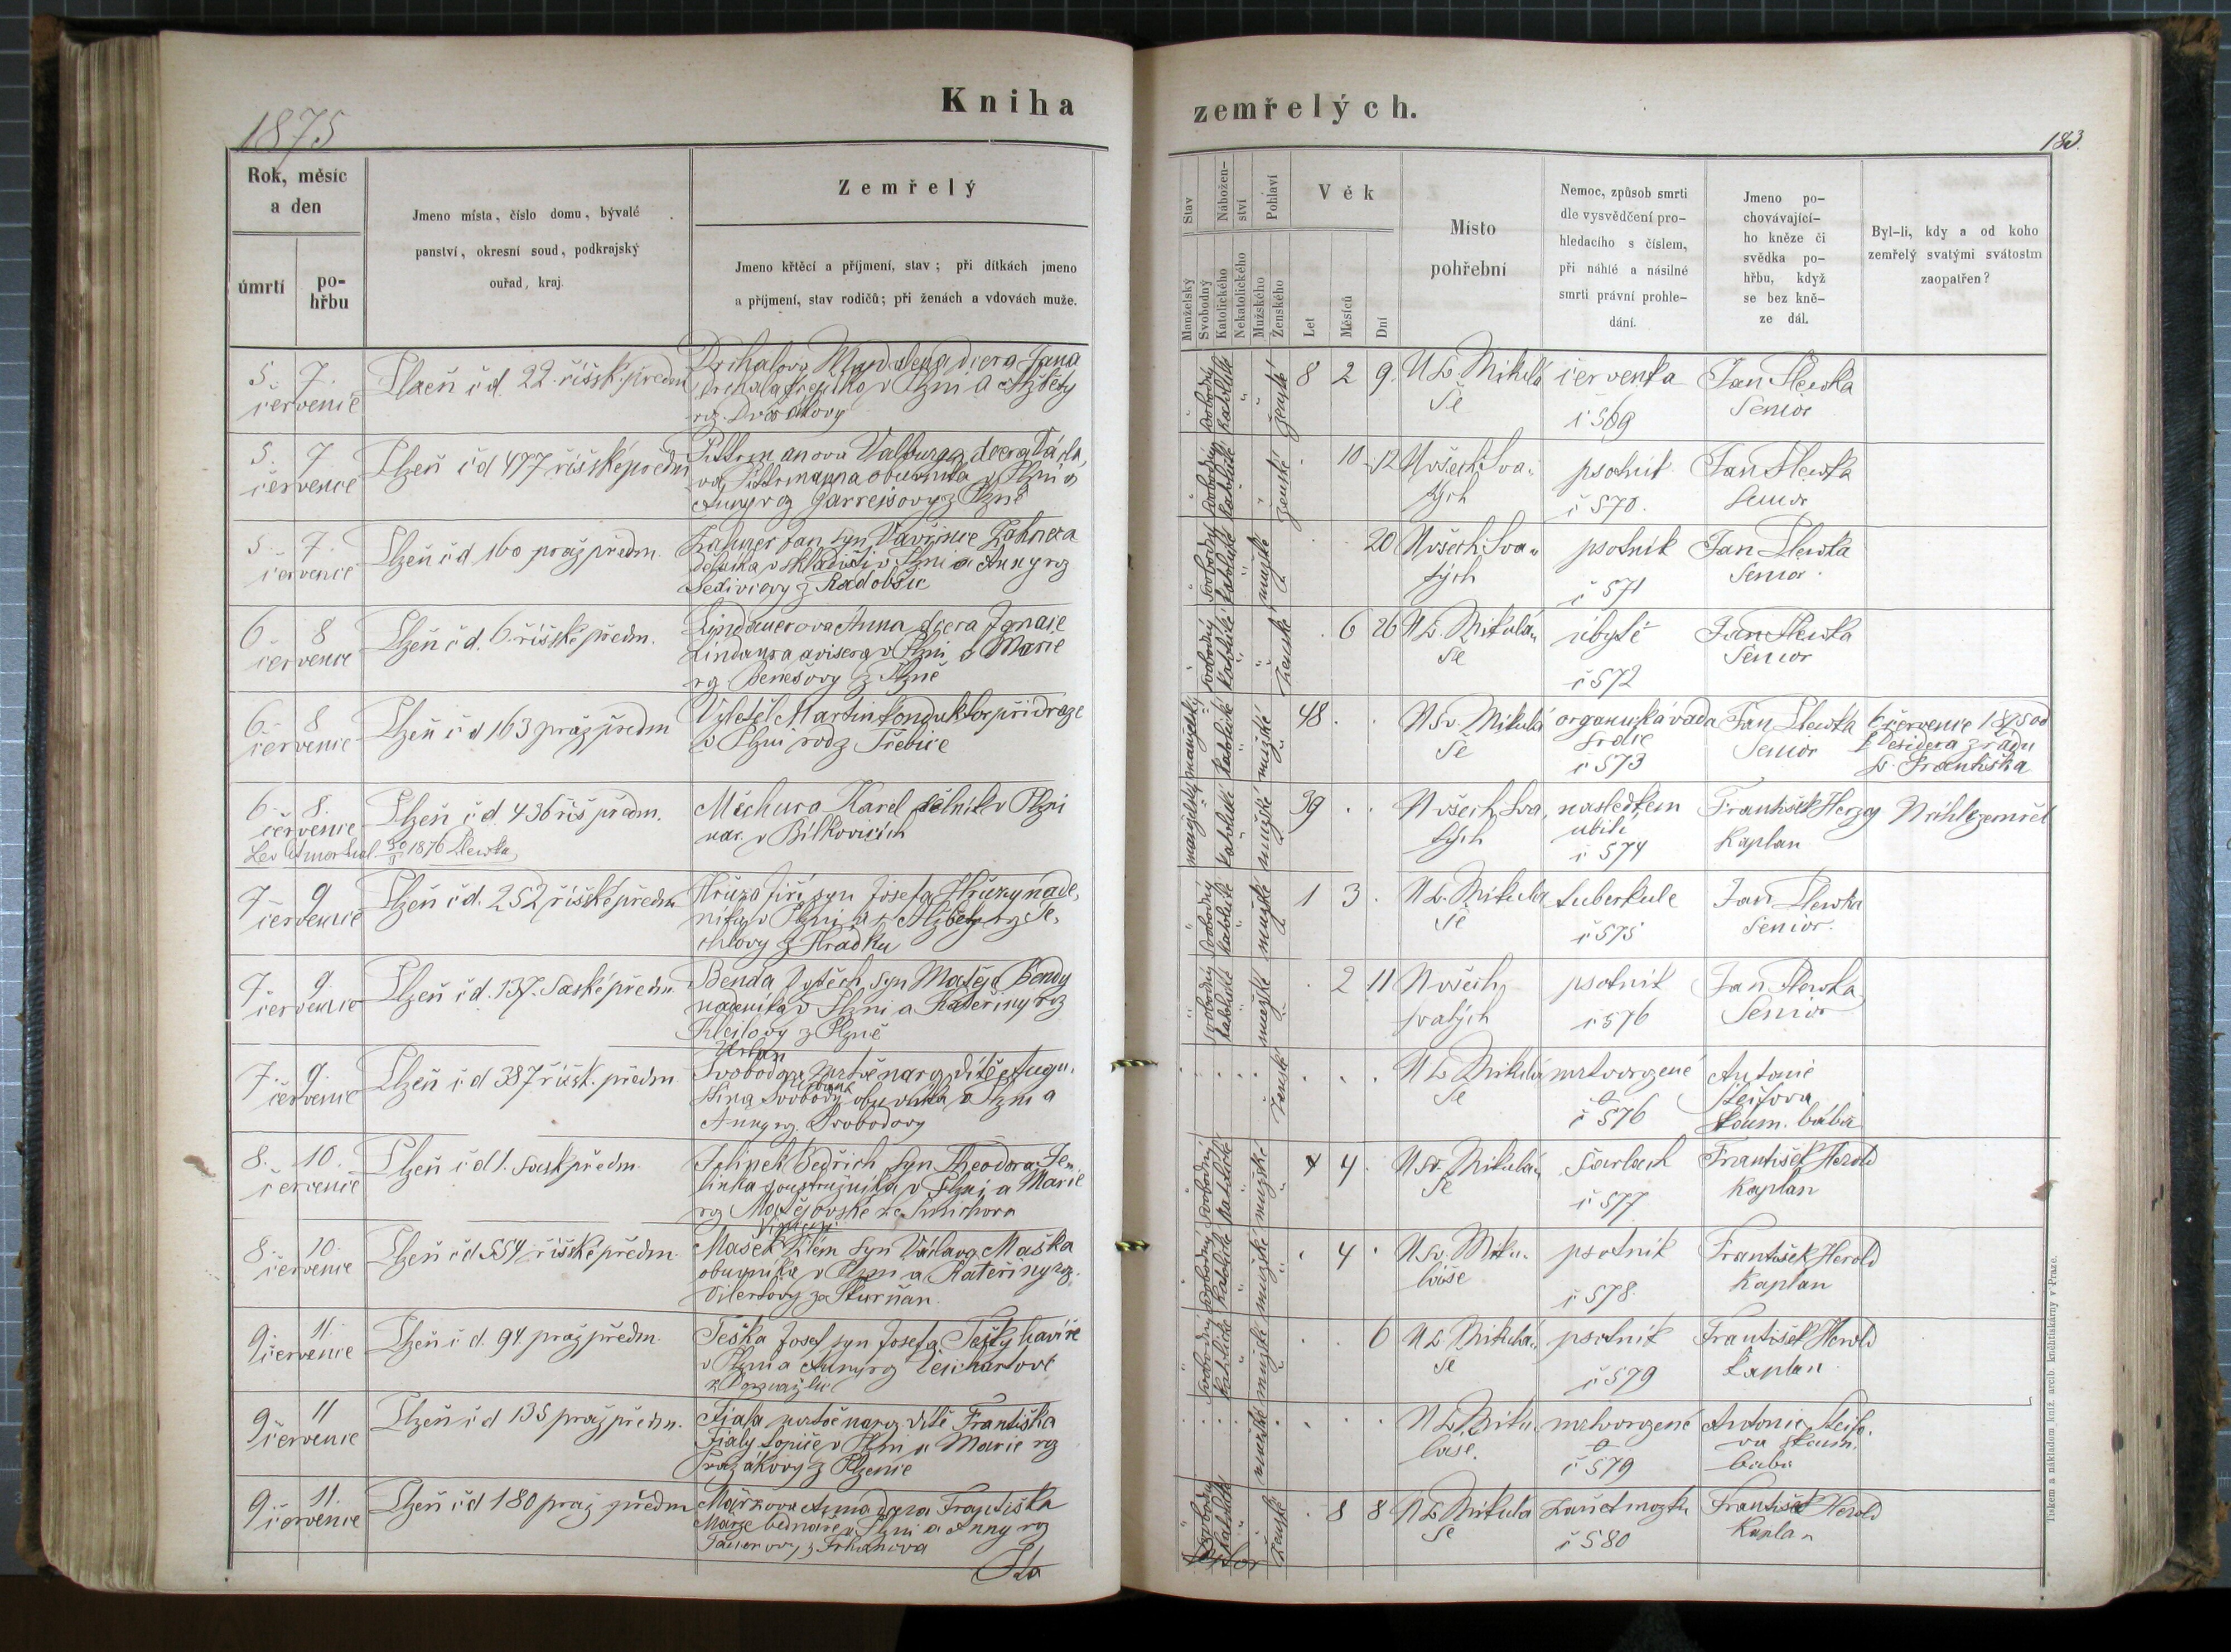 Kniha
zemřelých.
1875
183.
Rok, měsíc
a den
úmrtí
po-
hřbu
Jmeno místa, číslo domu, bývalé
panství, okresní soud, podkrajský
ouřad, kraj.
Zemřelý
Jmeno křtěcí a příjmení, stav; při dítkách jmeno
a příjmení, stav rodičů; při ženách a vdovách muže.
Stav
Manželský
Svobodný
Nábožen-
ství
Katolického
Nekatolického
Pohlaví
Mužského
Ženského
Věk
Let
Měsíců
Dní
Místo
pohřební
Nemoc, způsob smrti
dle vysvědčení pro-
hledacího s číslem,
při náhlé a násilné
smrti právní prohle-
dání.
Jmeno po-
chovávající-
ho kněze či
svědka po-
hřbu, když
se bez kně-
ze dál.
Byl-li, kdy a od koho
zemřelý svatými svátostm
zaopatřen?
5. 7.
července
Plzeň čd. 22. říšsk. předm
Magdalena dcera Jana
v Plzni a Alžběty
rz. Dvořákovy
svobodný katolické ženské
8 2 9.
U s. Mikulá
še
červenka
č 569
Jan Slewka
Senior
5. 7
července
Plzeň čd 477 říšské předm
Pittrmanova Valburga dcera Václa,
va Pittrmanna obuvníka v Plzni a
Anny rz z Plzně
svobodný katolické ženské
10 12
U všech Sva-
tých
psotník
č 570.
Jan Slewka
Senior
5 7.
července
Plzeň čd 160 praž předm.
Zahner Jan syn Vavřince Zahnera
dělníka v skladišti v Plzni a Anny rz
z Radobčic
svobodný katolické mužské
20
U všech Sva-
tých
psotník
č 571
Jan Slewka
Senior.
6 8
července
Plzeň čd. 6. říšské předm.
Lindauerova Anna dcera Ignace
Lindaura avisera v Plzni a Marie
rz Benešovy z Plzně
svobodný katolické ženské
6 26
U s. Mikulá-
še
úbytě
č 572
Jan Slewka
Senior
6 8
července
Plzeň čd 163 praž předm
Vyletěl Martin konduktor při dráze
v Plzni rodz Třebíce
manželský katolické mužské
48
U Sv. Mikulá
še
organická vada
srdce
č 573
Jan Slewka
Senior
6 července 1875 od
P Desidera z řádu
s. Františka
6. 8.
července
Plzeň čd. 436 říš předm.
1876 Slewka
Měchura Karel dělník v Plzni
nar. v Bílkovicích
manželský katolické mužské
39
U všech Sva,
tých
následkem
ubití
č 574
František Herzog
Kaplan
Náhle zemřel
7 9
července
Plzeň čd. 252 říšské předm
Hrůza Jiří syn Josefa Hrůzy náde,
níka v Plzni a Alžběty rz
z Hrádku
svobodný katolické mužské
1 3.
U s. Mikulá
še
tuberkule
č 575
Jan Slewka
Senior.
7 9
července
Plzeň čd. 137. Saské předm
Benda Vojtěch, syn Matěje Bendy
nádeníka v Plzni a Kateřiny rz
z Plzně
svobodný katolické mužské
2 11
U všech
svatých
psotník
č 576
Jan Slewka
Senior
7. 9.
července
Plzeň čd 387 říšsk. předm.
Urban
Svoboda mrtvě naroz dítě Augu-
Urbana
stina Svobody obuvníka v Plzni a
Anny rz. Svobodovy
ženské
U s. Mikulá
še
mrtvorozené
a
č 576
Antonie
Steifova
zkoum. bába
8. 10.
července
Plzeň čd 1. Sask předm.
Jelínek Bedřich syn Theodora Je-
línka soustružníka v Plzni a Marie
rz Matějovské ze Smíchova
svobodný katolické mužské
4 4
U sv. Mikulá-
še
šarlach
č 577
František Herold
Kaplan
8. 10.
července
Plzeň čd 554 říšské předm.
Mašek Vilém syn Václava Maška
obuvníka v Plzni a Kateřiny rz.
ze Skurňan.
svobodný katolické mužské
4
U sv. Miku-
láše
psotník
č 578.
František Herold
Kaplan
9 11.
července
Plzeň čd. 94 praž předm.
Teska Josef syn Josefa Tesky havíře
v Plzni a Anny rz
svobodný katolické mužské
6
U s. Mikulá-
še
psotník
č 579
František Herold
Kaplan.
9 11
července
Plzeň čd 135 praž předm.
Fiala mrtvě naroz dítě Františka
Fialy topiče v Plzni a Marie rz
Pražákovy z Plzence
mužské
U s. Miku-
láše.
mrtvorozené
a
č 579
Antonie Steifo-
va zkoum.
bába
9 11.
července
Plzeň čd 180 praž předm
Märzova Anna dcera Františka
Märze bednáře v Plzni a Anny rz
z Trhanova
svobodný katolické ženské
8 8
U s. Mikulá
še
zánět mozku
č 580
František Herold
Kaplan
Tiskem a nákladem kníž. arcib. knihtiskárny v Praze.